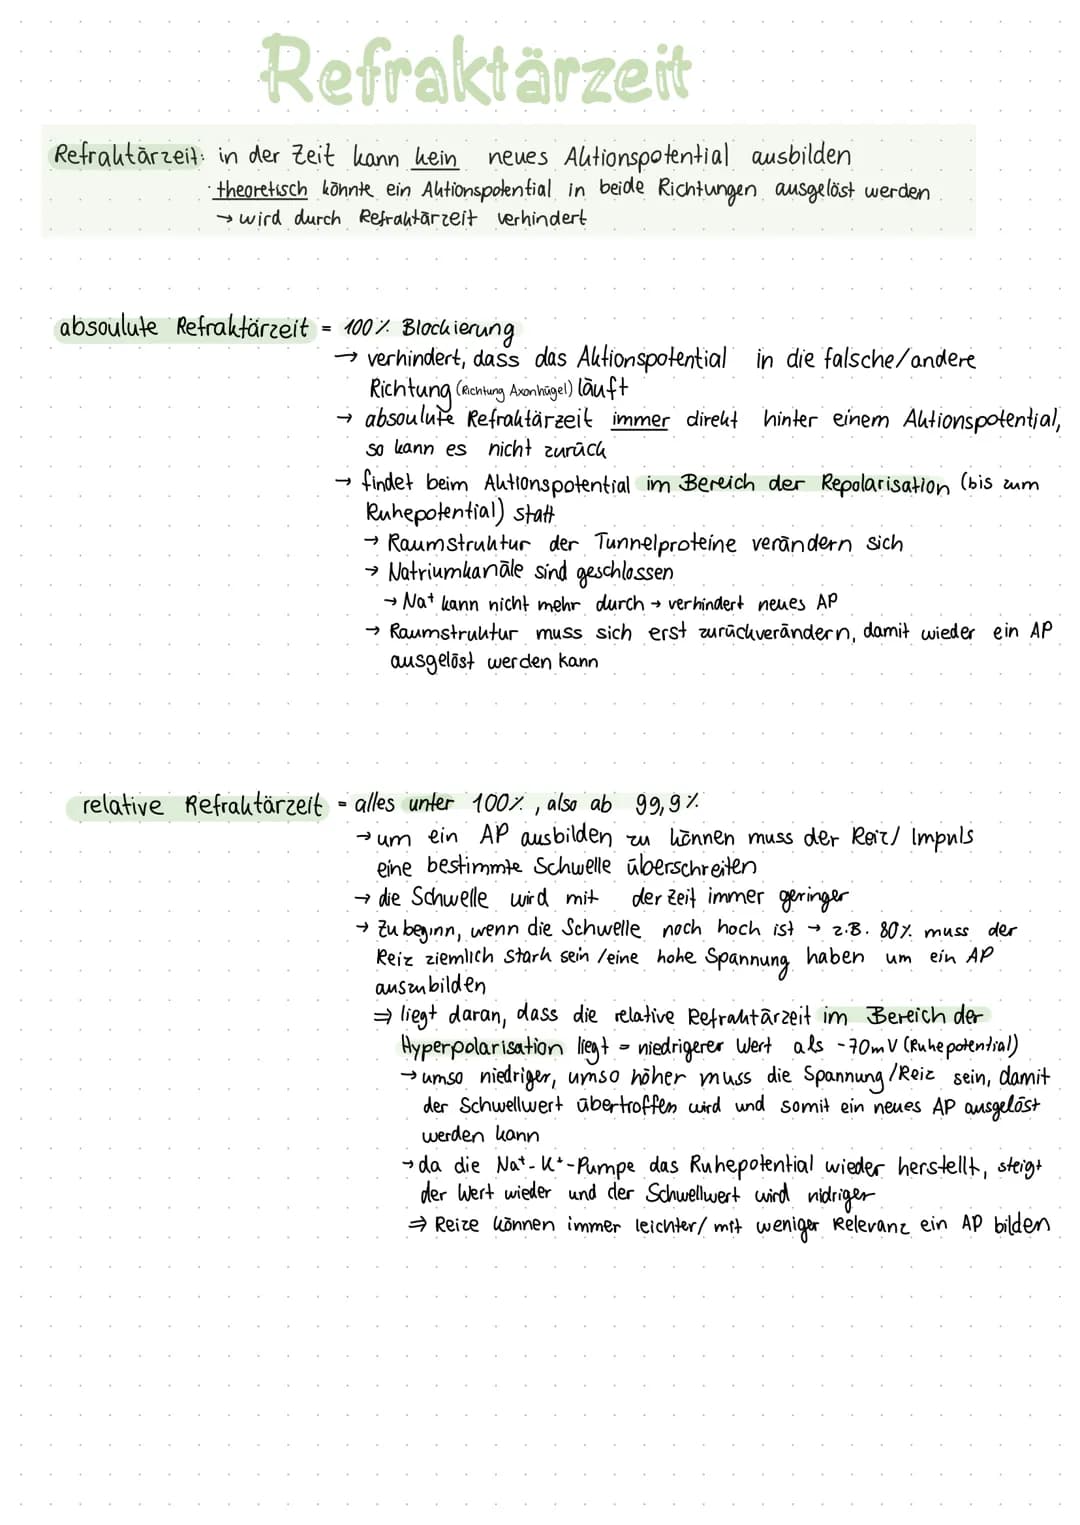 Refraktärzeit
Refraktärzeit: in der Zeit kann kein neues Aktionspotential ausbilden
· theoretisch könnte ein Aktionspotential in beide Richtungen ausgelöst werden
→ wird durch Refraktärzeit verhindert
absoulute Refraktärzeit = 100% Blockierung
→ verhindert, dass das Aktionspotential in die falsche/andere
Richtung (Richtung Axonhügel) läuft
→ absoulute Refraktärzeit immer direkt hinter einem Aktionspotential,
so kann es nicht zurück
→ findet beim Aktionspotential im Bereich der Repolarisation (bis zum
Ruhepotential) statt
→ Raumstruktur der Tunnelproteine verändern sich
→ Natriumkanäle sind geschlossen
→ Na⁺ kann nicht mehr durch → verhindert neues AP
→ Raumstruktur muss sich erst zurückverändern, damit wieder ein AP
ausgelöst werden kann
relative Refraktärzeit = alles unter 100%, also ab 99,9%
→ um ein AP ausbilden zu können muss der Reiz/ Impuls
eine bestimmte Schwelle überschreiten
→ die Schwelle wird mit der Zeit immer geringer
→ Zu beginn, wenn die Schwelle noch hoch ist → z.B. 80% muss der
Reiz ziemlich stark sein /eine hohe Spannung haben um ein AP
auszubilden
⇒ liegt daran, dass die relative Refraktärzeit im Bereich der
Hyperpolarisation liegt = niedrigerer Wert als -70mV (Ruhepotential)
→ umso niedriger, umso höher muss die Spannung/Reiz sein, damit
der Schwellwert übertroffen wird und somit ein neues AP ausgelöst
werden kann
→ da die Na⁺-K⁺-Pumpe das Ruhepotential wieder herstellt, steigt
der Wert wieder und der Schwellwert wird nidriger
⇒ Reize können immer leichter/ mit weniger Relevanz ein AP bilden